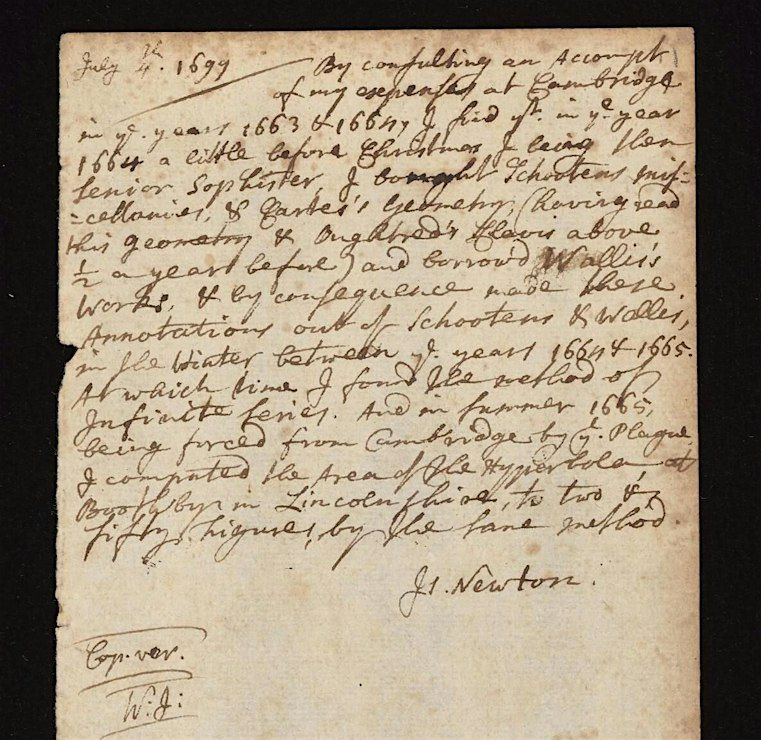 July 4th. 1699 By consulting an Accompt
of my expenses at Cambridge
in ye. years 1663 & 1664, I find yt. in ye. year
1664 a little before Christmas I being then
Senior Sophister, I bought Schootens Mis=
=cellanies, & Cartes's Geometry (having read
this Geometry & Oughtred's Clavis above
½ a year before) and borrow'd Wallis's
Works, & by consequence made these
Annotations out of Schooten & Wallis,
in the Winter between ye. years 1664 & 1665.
At which time I found the method of
Infinite series. And in summer 1665,
being forced from Cambridge by ye. Plague
I computed the Area of the Hyperbola at
Boothby in Lincolnshire, to two &
fifty figures, by the same method.
Is. Newton.
Cop. ver.
W: J: